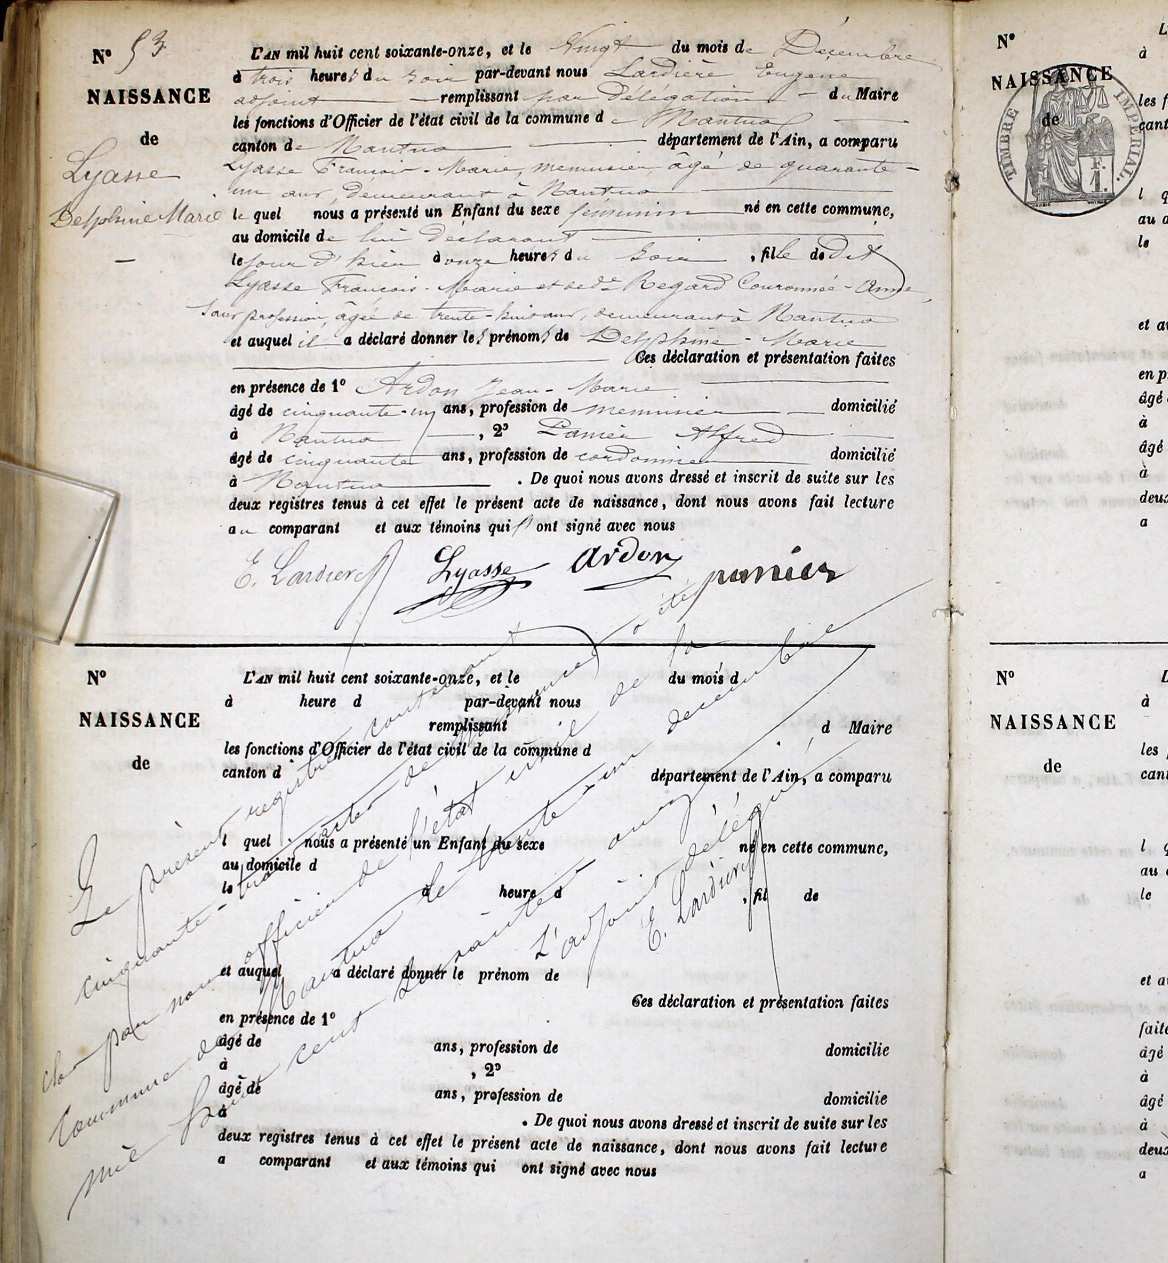 N° 53
NAISSANCE
de
Lyasse
Delphine Marie
L'AN mil huit cent soixante-onze, et le Vingt du mois de Décembre
à trois heures du Soir par-devant nous Lardière Eugène
adjoint remplissant par délégation du Maire
les fonctions d'Officier de l'état civil de la commune de Nantua
canton de Nantua département de l'Ain, a comparu
Lyasse François-Marie, menuisier, âgé de quarante-
un ans, demeurant à Nantua
le quel nous a présenté un Enfant du sexe féminin né en cette commune,
au domicile de lui déclarant
le jour d'hier à onze heures du Soir, fille de dit
Lyasse François-Marie et de de Regard Couronnée-Anne,
Sans profession, âgée de trente-huit ans, demeurant à Nantua
et auquel il a déclaré donner les prénoms de Delphine-Marie
Ces déclaration et présentation faites
en présence de 1° Ardon Jean-Marie
âgé de cinquante-un ans, profession de menuisier domicilié
à Nantua, 2° Panier Alfred
âgé de cinquante ans, profession de cordonnier domicilié
à Nantua. De quoi nous avons dressé et inscrit de suite sur les
deux registres tenus à cet effet le présent acte de naissance, dont nous avons fait lecture
au comparant et aux témoins qui ont signé avec nous
E. Lardière Lyasse Ardon panier
N°
NAISSANCE
de
L'AN mil huit cent soixante-onze, et le du mois d
à heure d par-devant nous
remplissant d Maire
les fonctions d'Officier de l'état civil de la commune d
canton d département de l'Ain, a comparu
l quel nous a présenté un Enfant du sexe né en cette commune,
au domicile d
le à heure d , fil de
et auquel a déclaré donner le prénom de
Ces déclaration et présentation faites
en présence de 1°
âgé de ans, profession de domicilié
à , 2°
âgé de ans, profession de domicilié
à . De quoi nous avons dressé et inscrit de suite sur les
deux registres tenus à cet effet le présent acte de naissance, dont nous avons fait lecture
a comparant et aux témoins qui ont signé avec nous
Le présent registre contenant
cinquante-trois actes de naissances a été
clos par nous officier de l'état civil de la
Commune de Nantua le trente-un décembre
mil huit cent soixante-onze
L'adjoint délégué
E. Lardière
N°
NAISSANCE
de
TIMBRE IMPÉRIAL.
F.
1.
L'
à
les f
cant
l q
au d
le
et au
en p
âgé
à
âgé
à
deux
a
N°
NAISSANCE
de
L'
à
les
cant
l q
au
le
et au
faite
âgé
à
âgé
à
deux
a